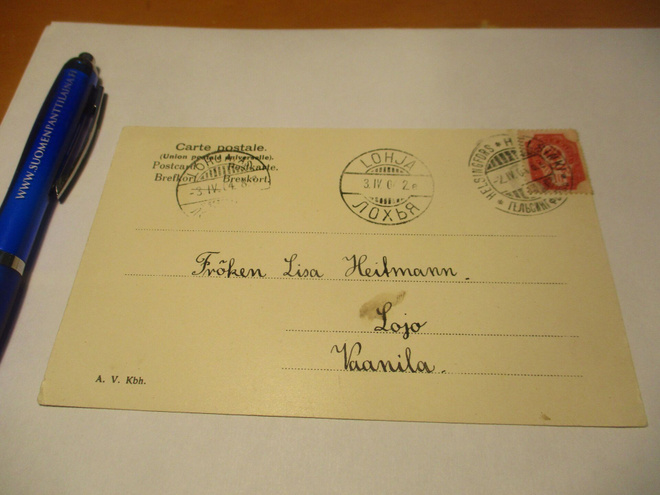 WWW.SUOMENPANTTILAINA.FI
Carte postale.
(Union postale universelle).
Postcard. Postkarte.
Brefkort. Brevkort.
LOHJA
3.IV.0 2.
ЛОХЬЯ
HELSINGFORS
-2.IV.0
Fröken Lisa Heitmann.
Lojo
Vaanila.
A. V. Kbh.